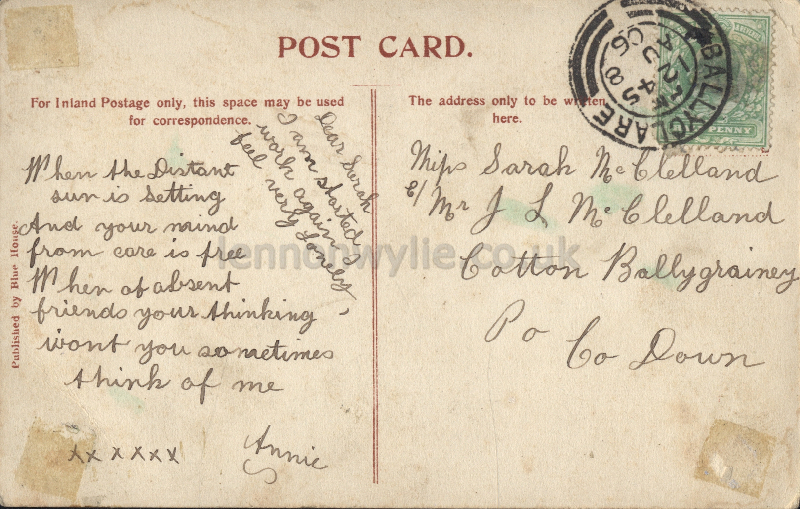 POST CARD.
For Inland Postage only, this space may be used
for correspondence.
The address only to be written
here.
BALLYCLARE
AU 12
06
PENNY
Dear Sarah
I am started
work again
feel very lonely
When the Distant
sun is setting
And your mind
from care is free
When of absent
friends your thinking
wont you sometimes
think of me
xx x x x x
Annie
Miss Sarah McClelland
c/ Mr J L McClelland
Cotton Ballygrainey
Po
Co Down
Published by Blue House.
lennonwylie.co.uk